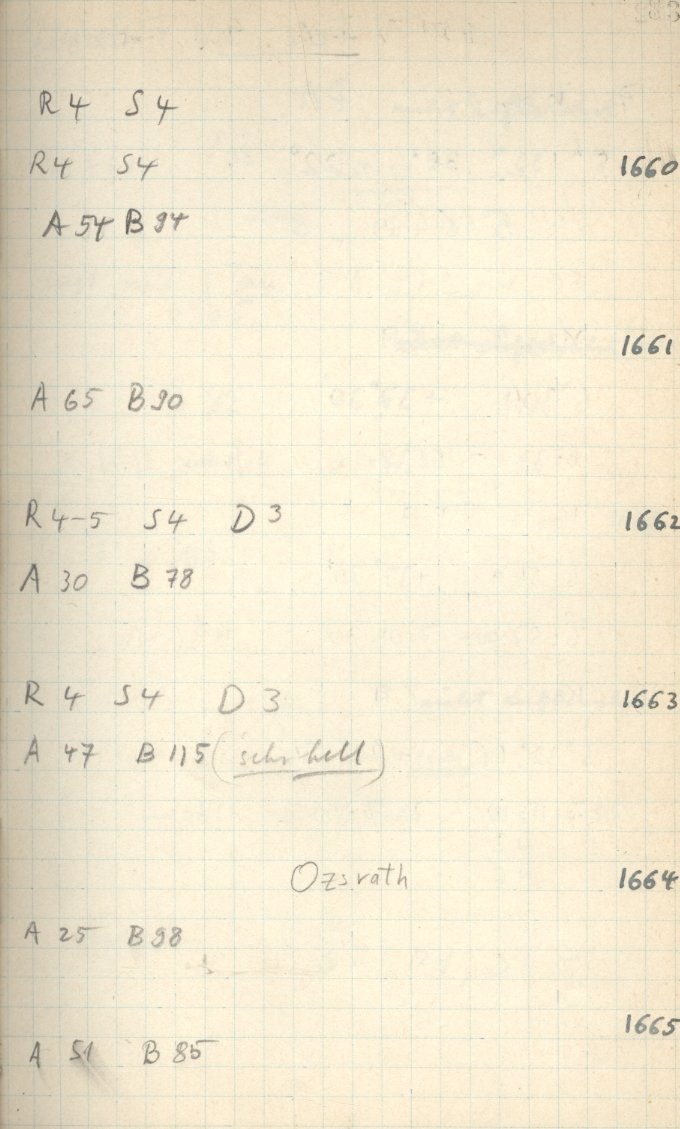 R 4 S 4
R 4 S 4 1660
A 54 B 94
1661
A 65 B 90
R 4-5 S 4 D 3 1662
A 30 B 78
R 4 S 4 D 3 1663
A 47 B 115 (sehr hell)
Ozsrath 1664
A 25 B 98
1665
A 51 B 85